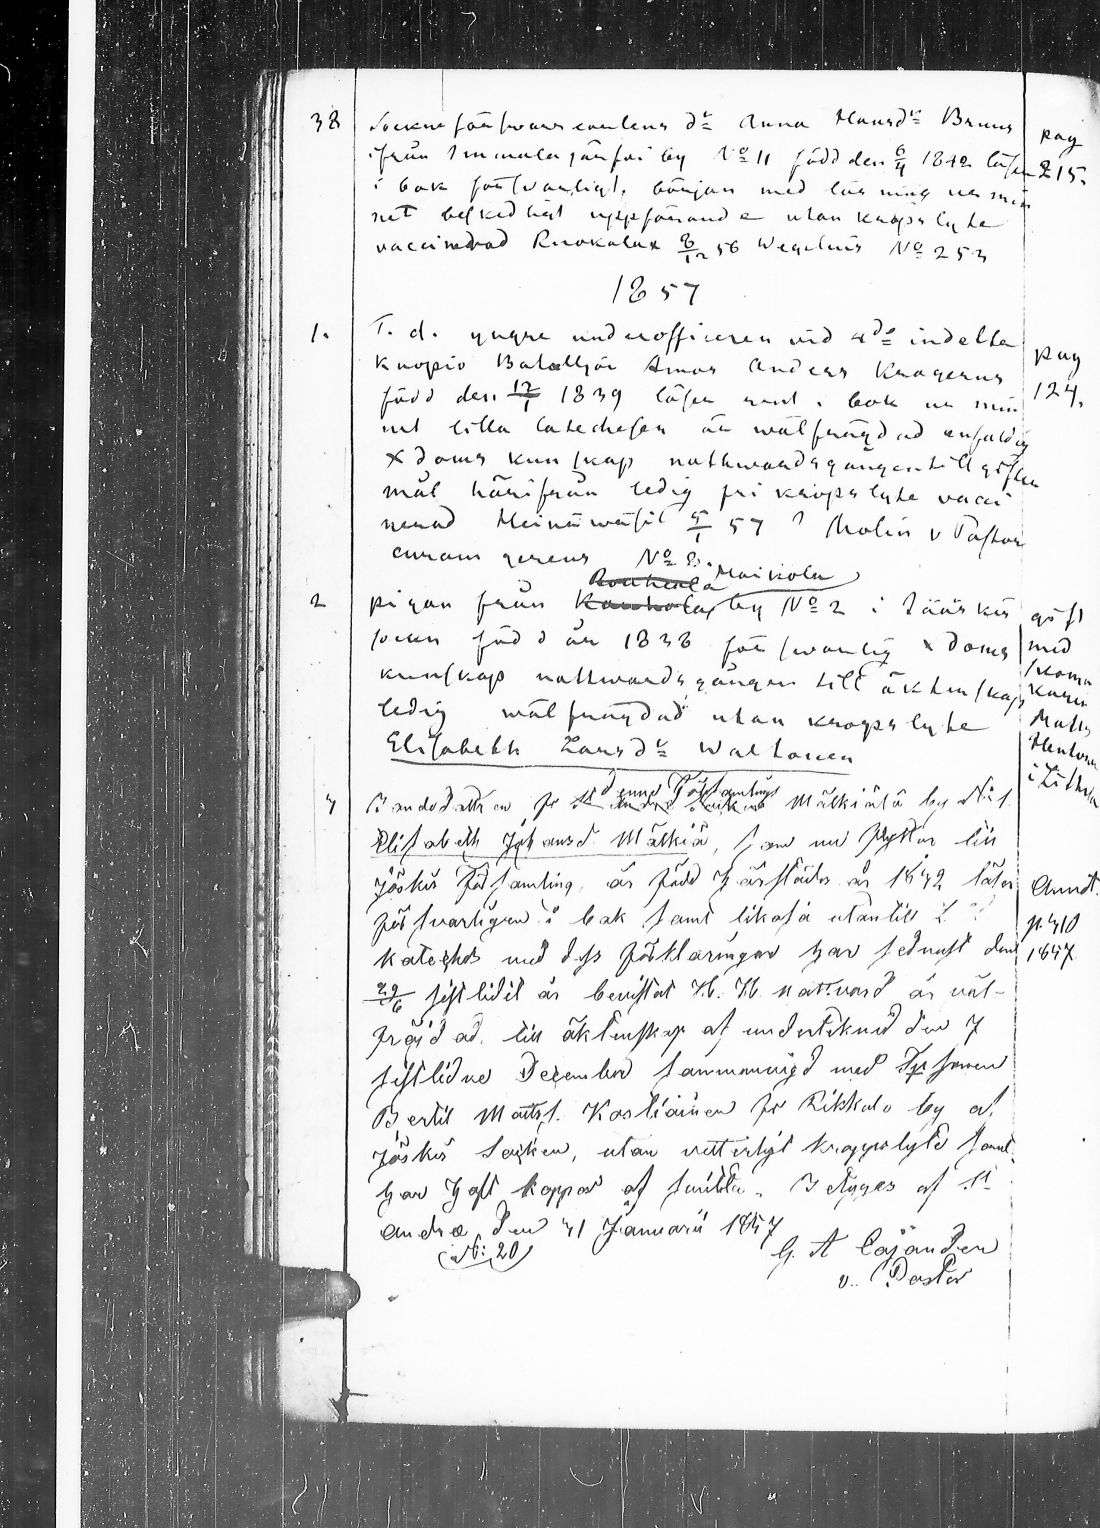 38 Sockne försvarskarlens dr Anna Hansdr Bruns pag
ifrån Immalanjärfvi by No 11 född den 6/4 1812 läser 215.
i bok försvarligt, början med läsning ur min
net beskedligt uppförande utan kroppslyte
vaccinerad Ruokolax 8/12 56 Wegelius No 253
1857
1. T. d. yngre underofficeren vid 4de indelta
Kuopio Bataljon Amos Anders Kragerus pag
född den 17/1 1839 läser rent i bok ur min 124.
net lilla catechesen är wälfräjdad enfaldig
xdoms kunskap nattwardsgången till gifter
mål härifrån ledig fri kropslyte vacci
nerad Heinäwesi 5/1 57 Molin v Pastor
curam gerens No 8.
Maikola
2 pigan från by No 2 i Jääskis gift
socken född år 1838 försvarlig xdoms med
kunskap nattwardsgången till äktenskap
ledig wälfräjdad utan kroppslyte
Elisabeth Larsdr Waltonen
denna Församlings
Bondedottren fr Mälkiälä by No 1.
Elisabeth Johansd. Mälkiä, som nu flyttar till
Jöskis Församling, är född härstädes år 1832 läser Annot.
försvarligen i bok samt likaså utantill p. 310
Kateches med dess förklaringar har sednast den 1857
29/6 sistlidit år bevistat H. H. nattvard är väl-
fräjdad, till äktenskap af undertecknad den 7
sistlidne December sammanvigd med
Bertil Matss. Kostiainen fr Rikkala by af
Jöskis Socken, utan vetterligt kroppslyte samt
har haft koppor af smitta. Betygas af St
Andreæ den 31 Januarii 1857
(No: 20) G. A Cajander
v. Pastor